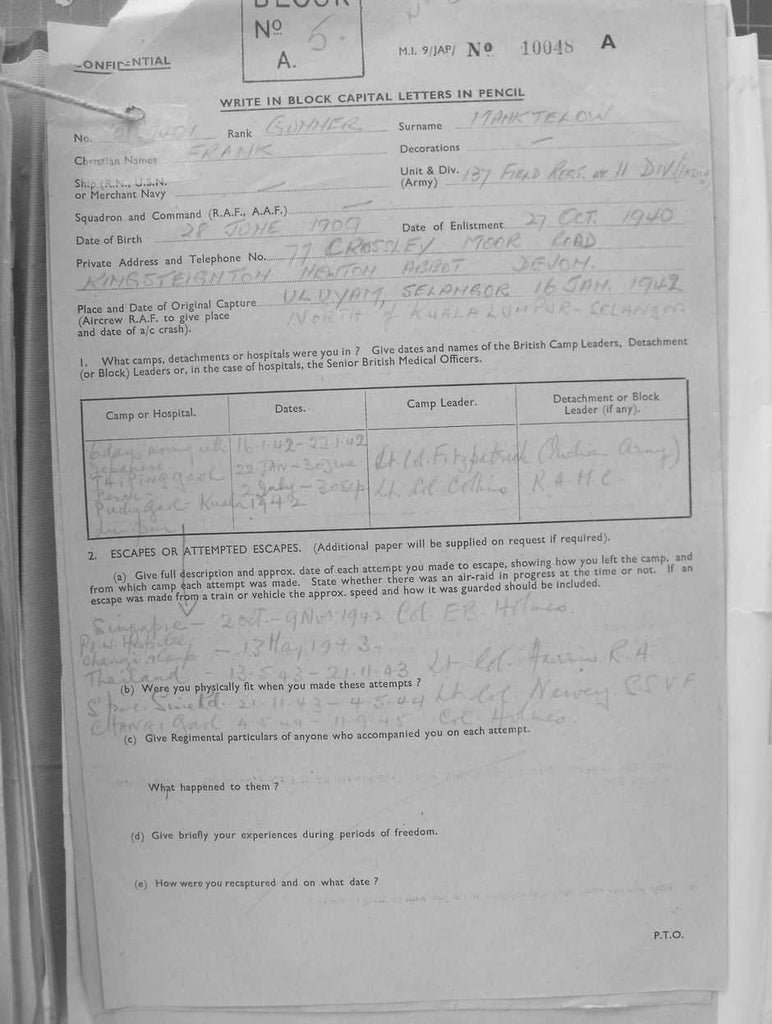 BLOCK
No 5.
A.
CONFIDENTIAL
M.I. 9/JAP/ No 10048 A
WRITE IN BLOCK CAPITAL LETTERS IN PENCIL
No. Rank GUNNER Surname MANKTELOW
Christian Names FRANK Decorations —
Ship (R.N., U.S.N. or Merchant Navy —
Unit & Div. (Army) 137 FIELD REGT. 11 DIV (INDIA)
Squadron and Command (R.A.F., A.A.F.) —
Date of Birth 28 JUNE 1909 Date of Enlistment 27 OCT. 1940
Private Address and Telephone No. 77 CROSSLEY MOOR ROAD
KINGSTEIGNTON NEWTON ABBOT DEVON.
Place and Date of Original Capture ULU YAM, SELANGOR 16 JAN. 1942
(Aircrew R.A.F. to give place NORTH of KUALA LUMPUR. SELANGOR
and date of a/c crash).
1. What camps, detachments or hospitals were you in ? Give dates and names of the British Camp Leaders, Detachment
(or Block) Leaders or, in the case of hospitals, the Senior British Medical Officers.
Camp or Hospital. Dates. Camp Leader. Detachment or Block Leader (if any).
6 days moving with Japanese 16.1.42 – 22.1.42
TAIPING Gaol Perak 22 JAN – 30 June Lt Col. Fitzpatrick (Indian Army)
Pudu Gaol Kuala Lumpur 2 July – 30 Sep 1942 Lt. Col. Collins R.A.M.C.
2. ESCAPES OR ATTEMPTED ESCAPES. (Additional paper will be supplied on request if required).
(a) Give full description and approx. date of each attempt you made to escape, showing how you left the camp, and
from which camp each attempt was made. State whether there was an air-raid in progress at the time or not. If an
escape was made from a train or vehicle the approx. speed and how it was guarded should be included.
Singapore – 2 Oct. – 9 Nov 1942 Col. E.B. Holmes.
P.O.W. Hospital
Changi Camp – 13 May 1943.
Thailand 13.5.43 – 21.11.43 Lt. Col. Harris R.A.
(b) Were you physically fit when you made these attempts ?
S'pore 21.11.43 – 4.5.44 Lt. Col. Newey SSVF
CHANGI Gaol 4.5.44 – 11.9.45 Col Holmes.
(c) Give Regimental particulars of anyone who accompanied you on each attempt.
What happened to them ?
(d) Give briefly your experiences during periods of freedom.
(e) How were you recaptured and on what date ?
P.T.O.